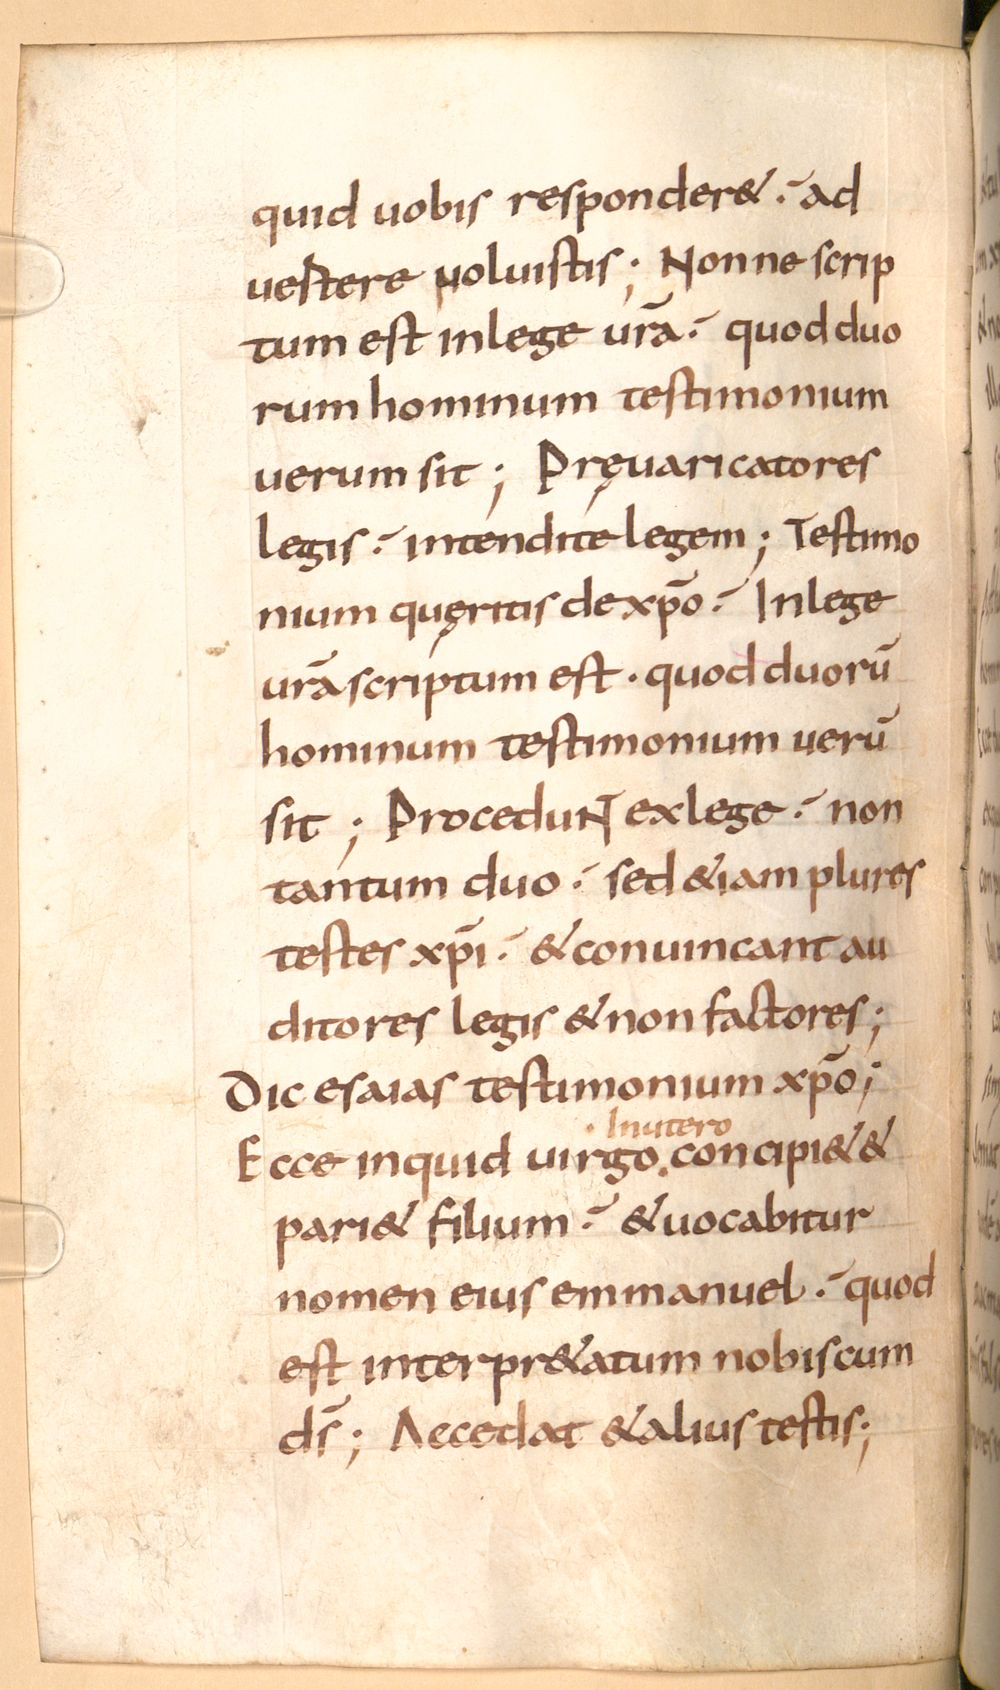 quid uobis responder& ·´ ad
uestere uoluistis; Nonne scrip
tum est inlege ur̄a ·´ quod duo
rum hominum testimonium
uerum sit; Pręuaricatores
legis ·´ intendite legem; Testimo
nium quęritis de xp̄o ·´ Inlege
ur̄a scriptum est · quod duorū
hominum testimonium uerū
sit; Procedunt exlege ·´ non
tantum duo ·´ sed &iam plures
testes xp̄i ·´ & conuincant au
ditores legis & non factores;
Dic esaias testimonium xp̄o;
· Inutero
Ecce inquid uirgo. concipi& &
pari& filium ·´ & uocabitur
nomen eius emmanuel ·´ quod
est interpr&atum nobiscum
ds̄; Accedat & alius testis;